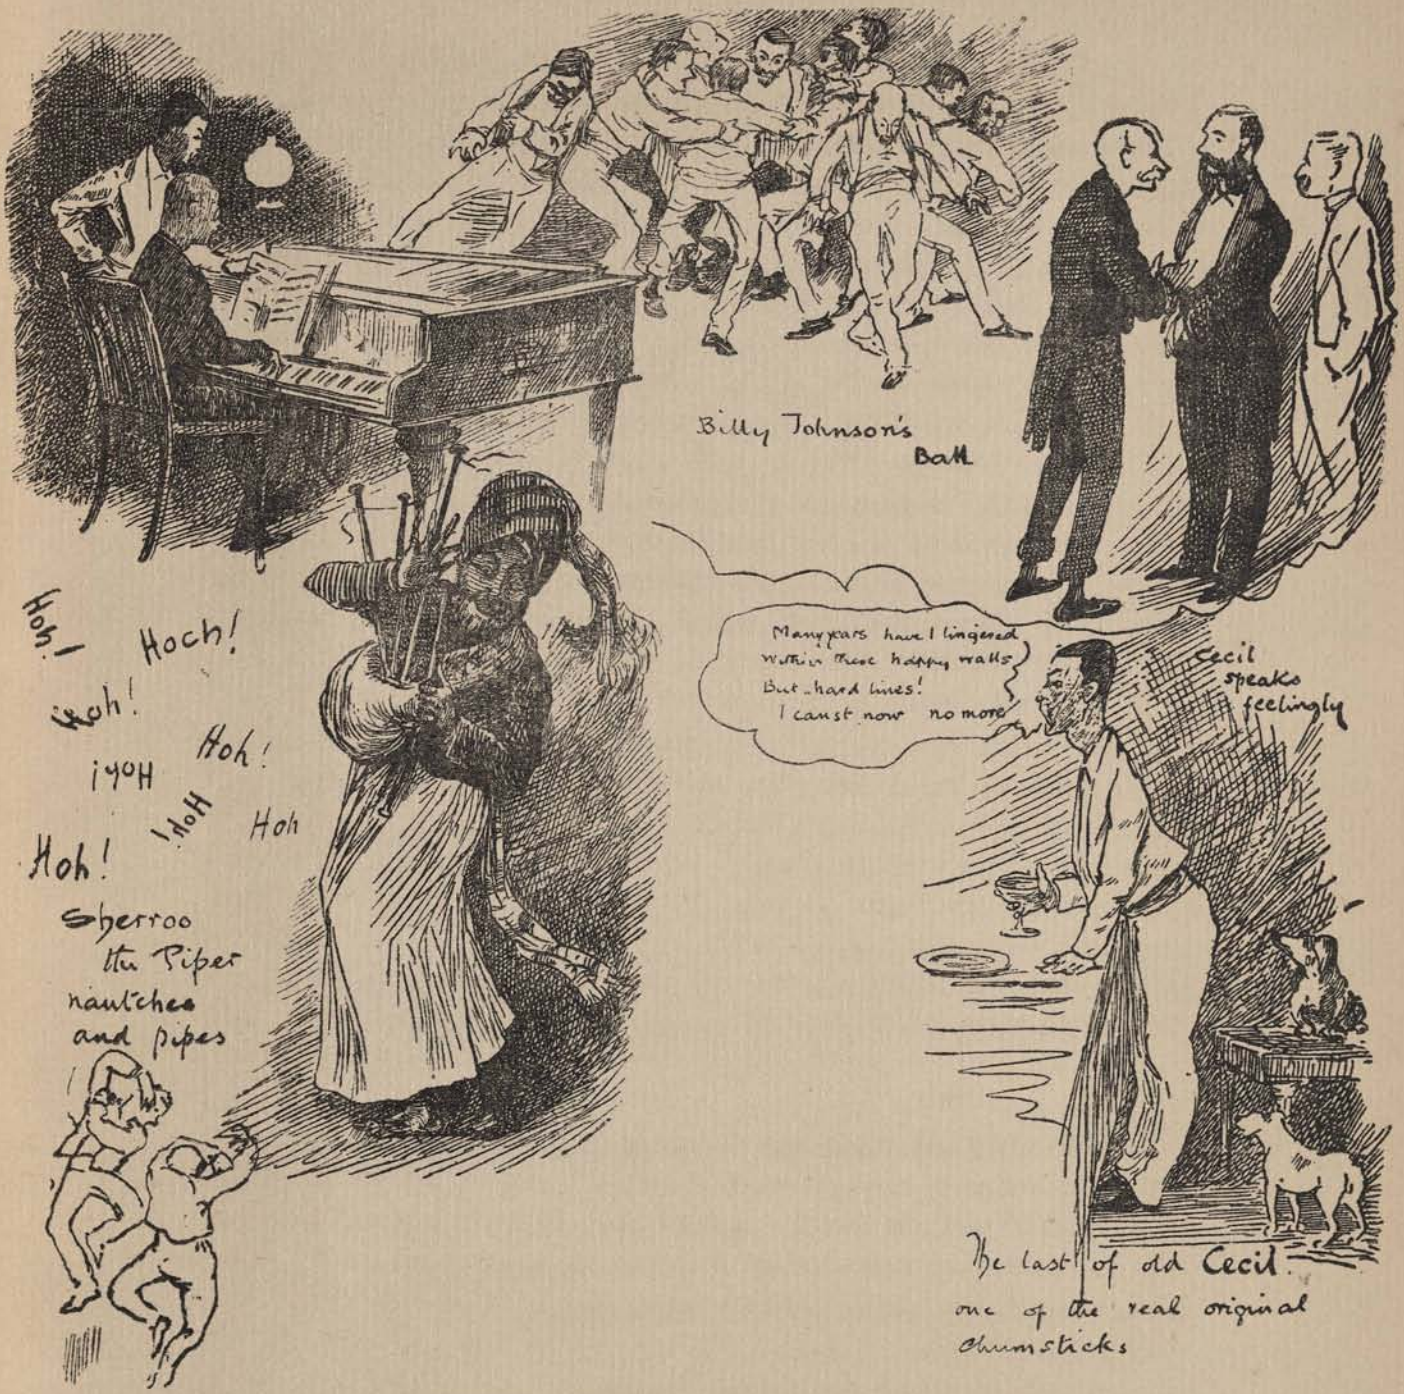 Billy Johnson's
Ball
Hoh!
Hoch!
Hoh!
Hoh!
Hoh!
Hoh!
Hoh
Hoh!
Sherroo
the Piper
nautches
and pipes
Many years have I lingered
within these happy walls
But hard lines!
I canst now no more
Cecil
speaks
feelingly
The last of old Cecil.
one of the real original
Chumsticks